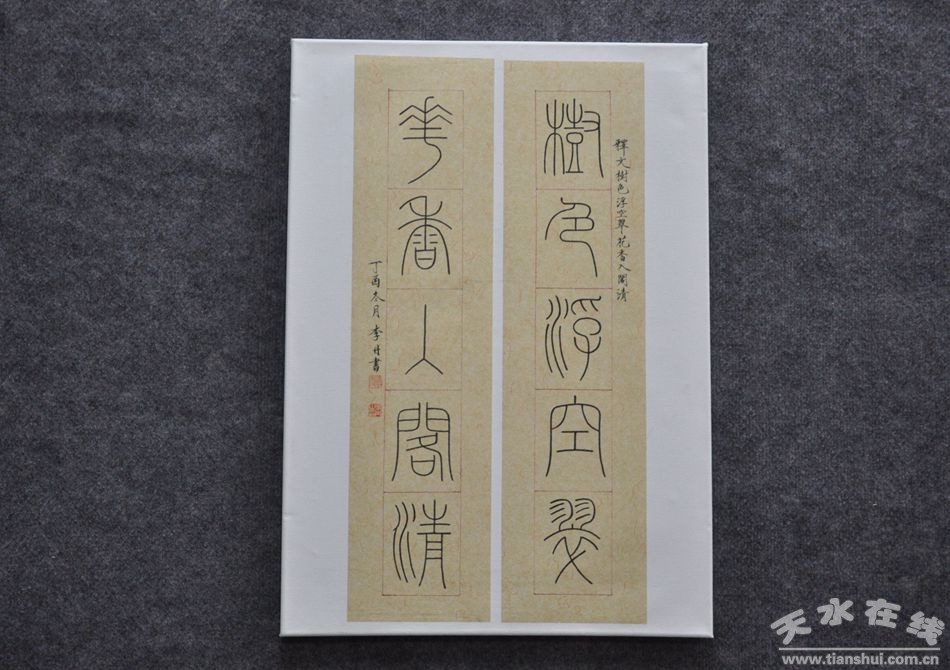 釋文樹色浮空翠花香入閣清
樹色浮空翠
華香入閣清
丁酉冬月李丹書
天水在线
www.tianshui.com.cn